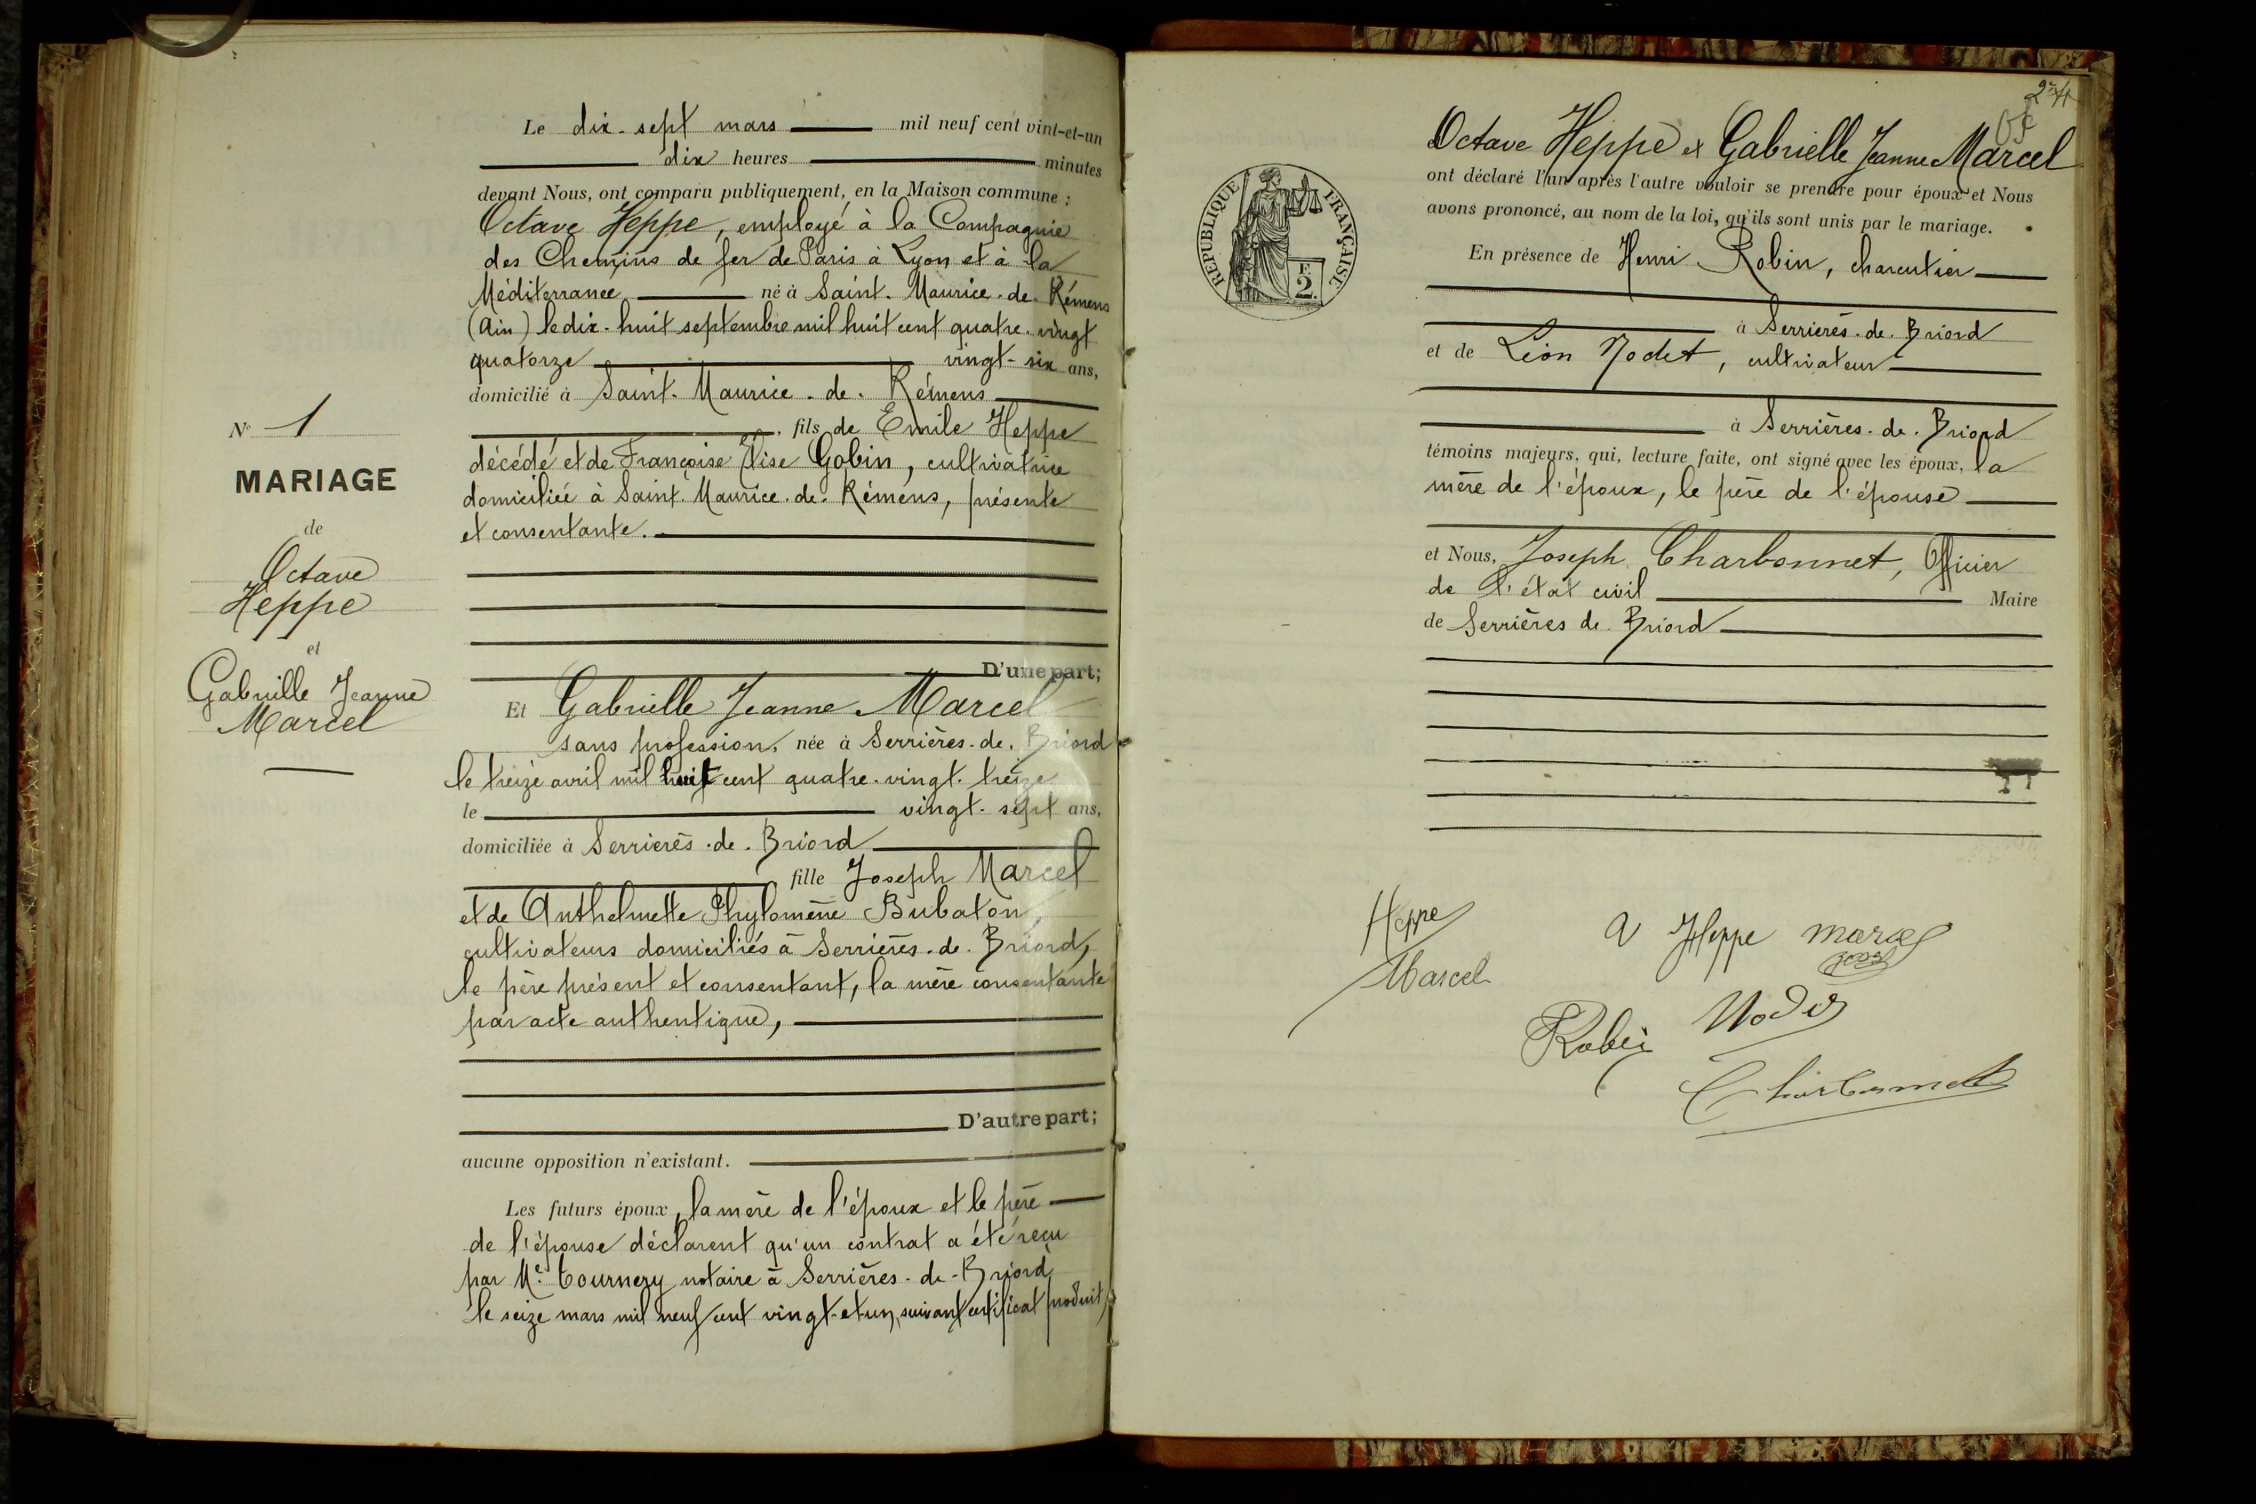 Le dix-sept mars mil neuf cent vint-et-un
dix heures minutes
devant Nous, ont comparu publiquement, en la Maison commune :
Octave Heppe, employé à la Compagnie
des Chemins de fer de Paris à Lyon et à la
Méditerranée né à Saint-Maurice-de-Rémens
(Ain) le dix-huit septembre mil huit cent quatre-vingt
quatorze vingt-six ans,
domicilié à Saint-Maurice-de-Rémens
, fils de Emile Heppe
décédé et de Françoise Elise Gobin, cultivatrice
domiciliée à Saint-Maurice-de-Rémens, présente
et consentante.
D'une part;
N° 1
MARIAGE
de
Octave
Heppe
et
Gabrielle Jeanne
Marcel
Et Gabrielle Jeanne Marcel
sans profession, née à Serrières-de-Briord
le treize avril mil huit cent quatre-vingt-treize
le vingt-sept ans,
domiciliée à Serrières-de-Briord
fille Joseph Marcel
et de Anthelmette Phylomène Bubaton,
cultivateurs domiciliés à Serrières-de-Briord,
le père présent et consentant, la mère consentante
par acte authentique,
D'autre part;
aucune opposition n'existant.
Les futurs époux, la mère de l'époux et le père
de l'épouse déclarent qu'un contrat a été reçu
par Me Tournery notaire à Serrières-de-Briord
le seize mars mil neuf cent vingt-et-un, suivant certificat produit,
Octave Heppe et Gabrielle Jeanne Marcel
ont déclaré l'un après l'autre vouloir se prendre pour époux et Nous
avons prononcé, au nom de la loi, qu'ils sont unis par le mariage.
RÉPUBLIQUE FRANÇAISE
F.
2.
En présence de Henri Robin, charcutier
à Serrières-de-Briord
et de Léon Nodet, cultivateur
à Serrières-de-Briord
témoins majeurs, qui, lecture faite, ont signé avec les époux, la
mère de l'époux, le père de l'épouse
et Nous, Joseph Charbonnet, Officier
de l'état civil Maire
de Serrières de Briord
Heppe
Marcel
Heppe Marcel
Robin Nodet
Charbonnet